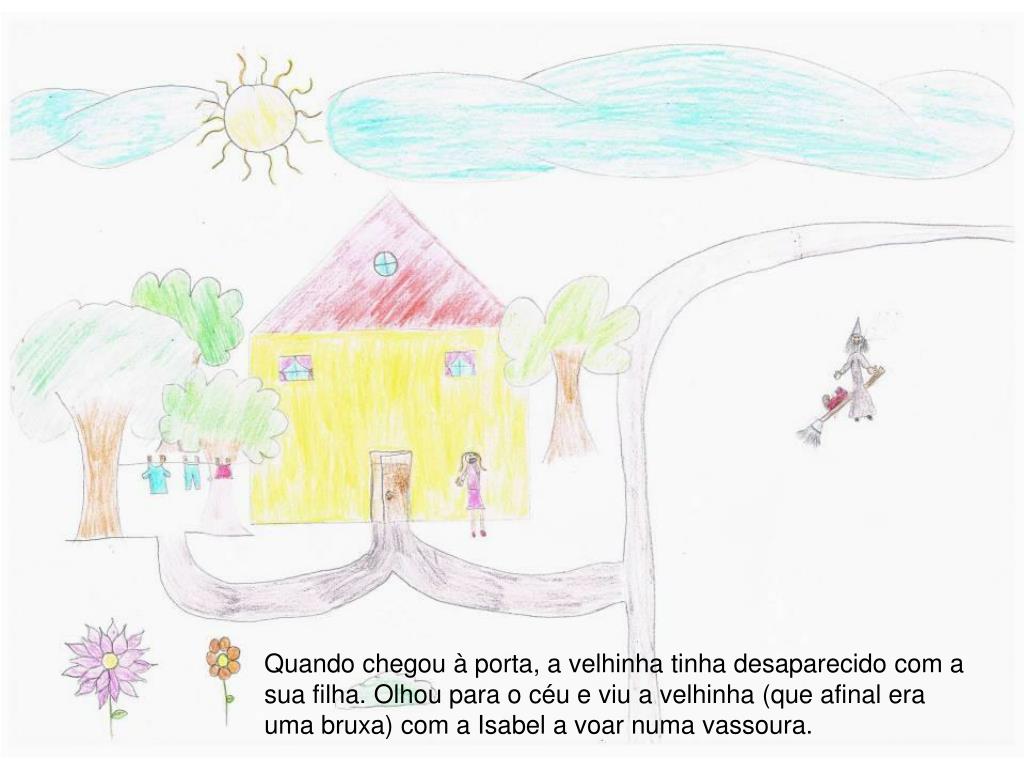 Quando chegou à porta, a velhinha tinha desaparecido com a
sua filha. Olhou para o céu e viu a velhinha (que afinal era
uma bruxa) com a Isabel a voar numa vassoura.